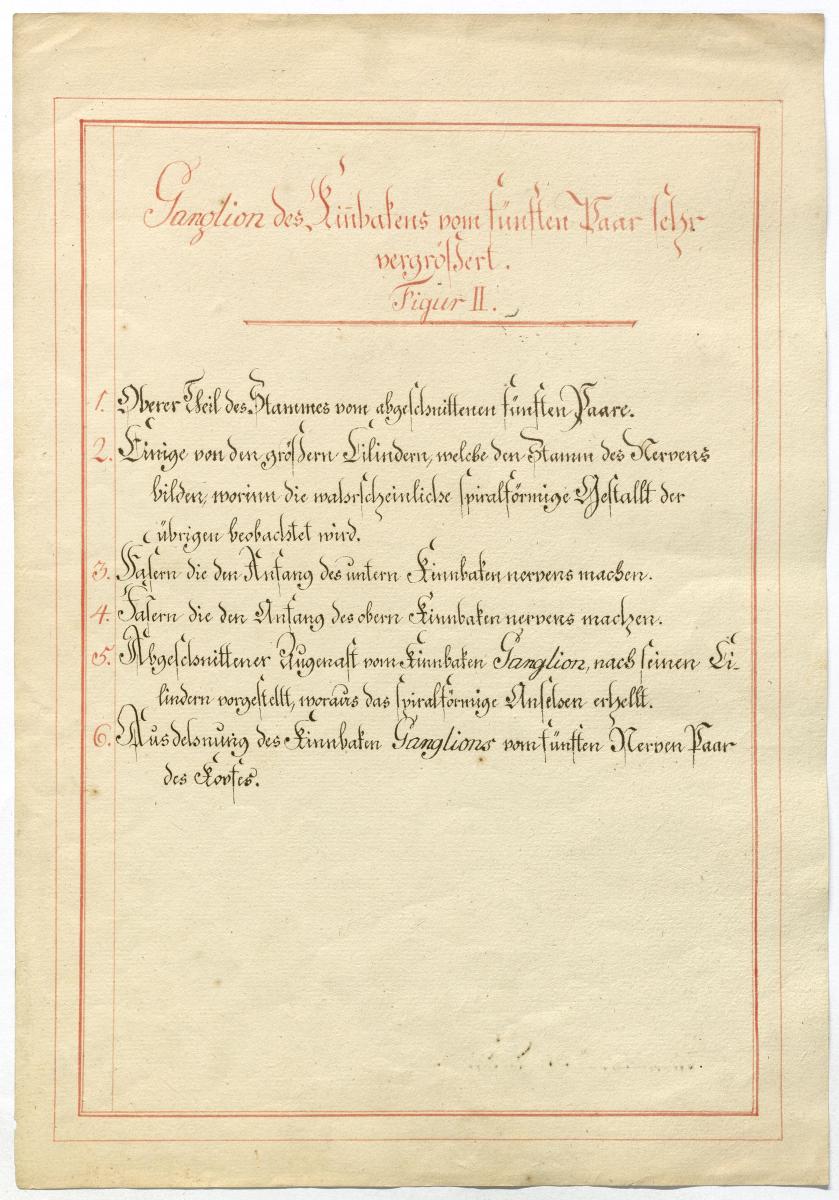 Ganglion des Kiñbakens vom fünften Paar sehr
vergrößert.
Figur II.
1. Oberer Theil des Stammes vom abgeschnittenen fünften Paare.
2. Einige von den größern Cilindern, welche den Stamm des Nervens
bilden, worinn die wahrscheinliche spiralförmige Gestallt der
übrigen beobachtet wird.
3. Fasern die den Anfang des untern Kinnbaken nervens machen.
4. Fasern die den Anfang des obern Kinnbaken nervens machen.
5. Abgeschnittener Augenast vom Kinnbaken Ganglion, nach seinen Ci-
lindern vorgestellt, woraus das spiralförmige Ansehen erhellt.
6. Ausdehnung des Kinnbaken Ganglions vom fünften Nerven Paar
des Kopfes.